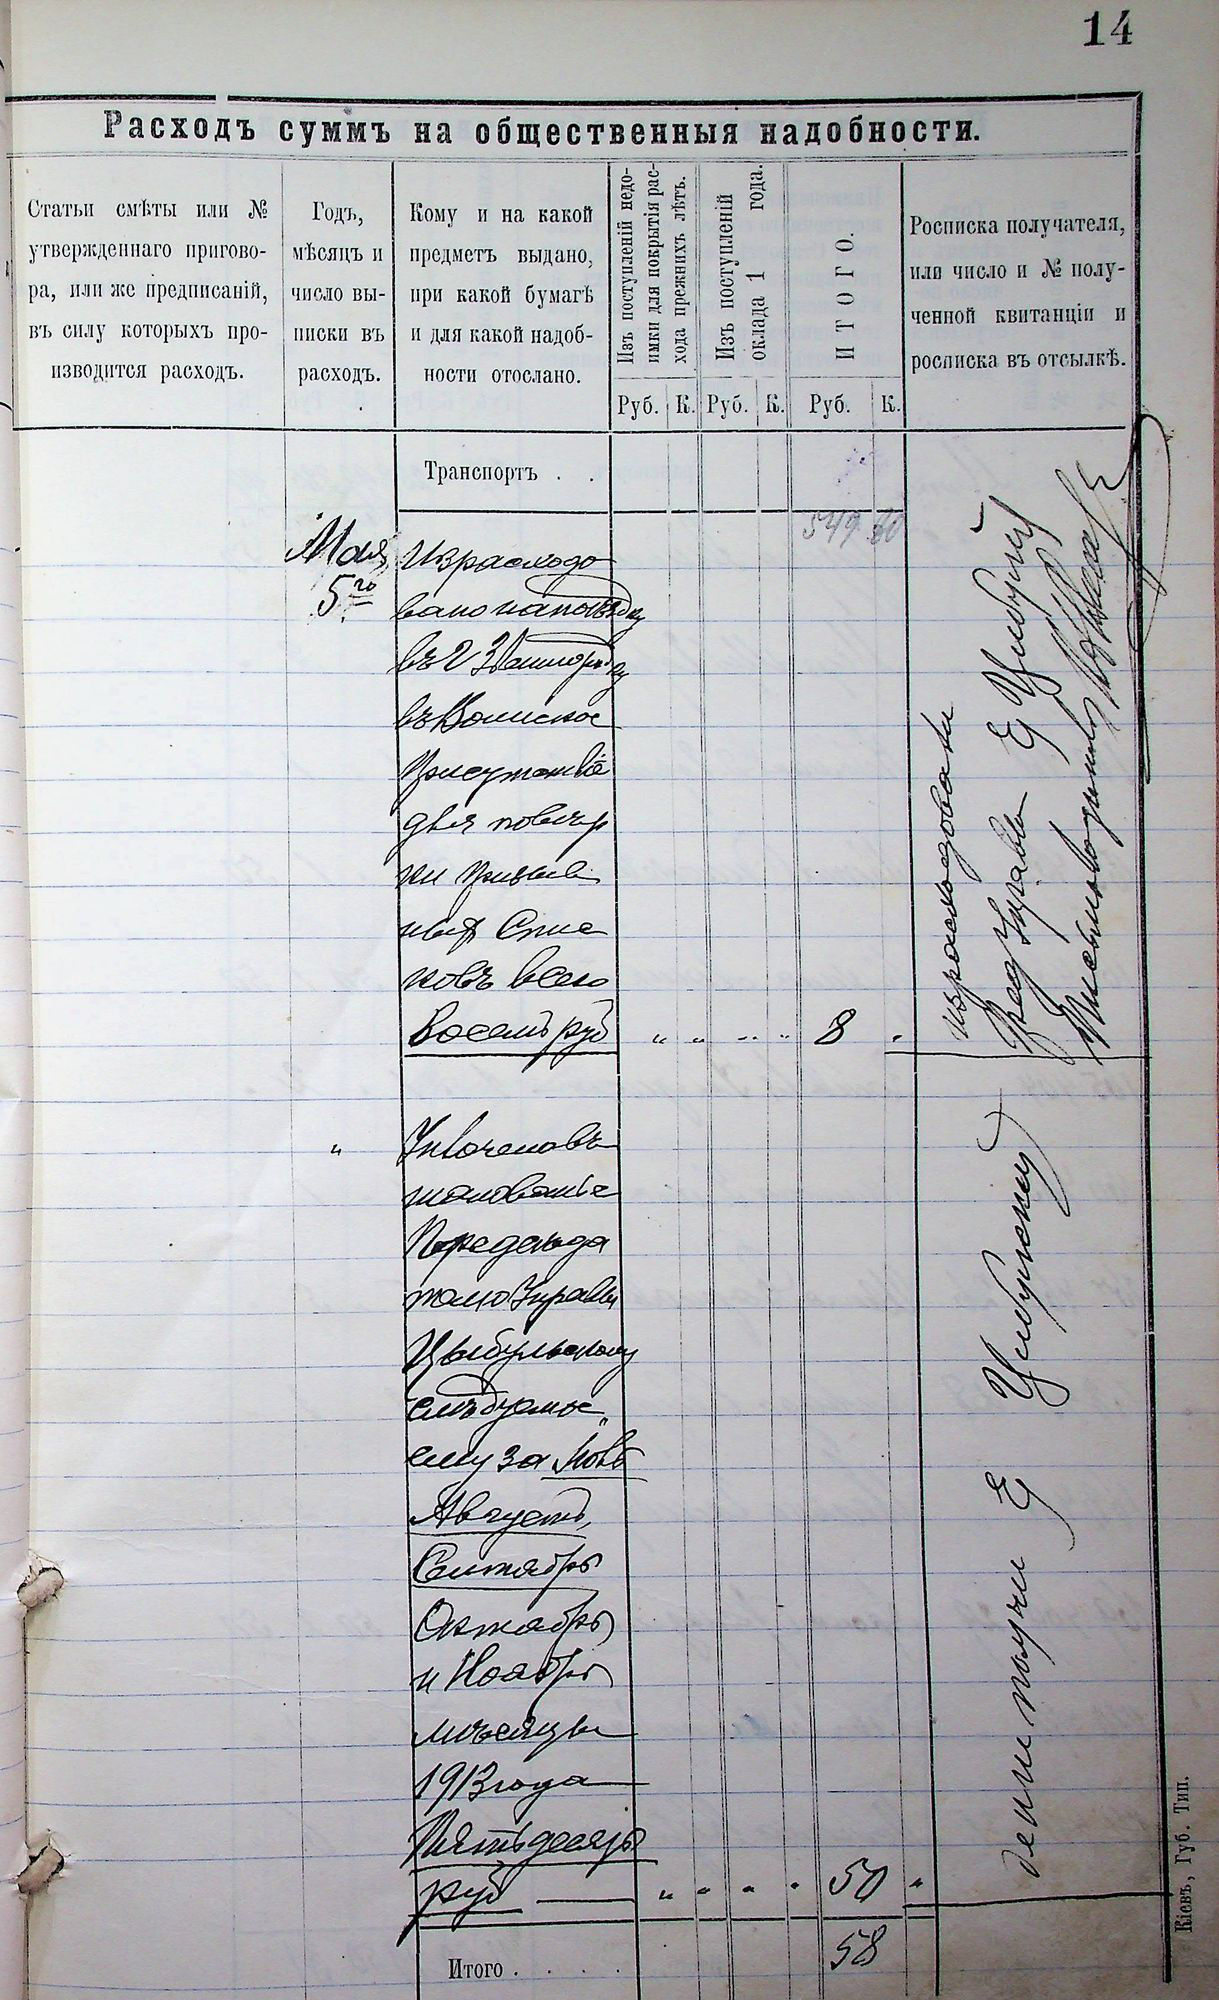 14
Расходъ суммъ на общественныя надобности.
Статьи смѣты или №
утвержденнаго пригово-
ра, или же предписаній,
въ силу которыхъ про-
изводится расходъ.
Годъ,
мѣсяцъ и
число вы-
писки въ
расходъ.
Кому и на какой
предметъ выдано,
при какой бумагѣ
и для какой надоб-
ности отослано.
Изъ поступленій недо-
имки для покрытія рас-
хода прежнихъ лѣтъ.
Изъ поступленій
оклада 1 года.
ИТОГО.
Росписка получателя,
или число и № полу-
ченной квитанціи и
росписка въ отсылкѣ.
Руб. К. Руб. К. Руб. К.
Транспортъ . .
549 60
Мая
5го
Израсходо
вано на поѣздку
въ г Звенигородку
въ Воинское
Присутствіе
для повѣр
ки призыв
ныхъ Спис
ковъ всего
Восемь руб „ „ „ „ 8 „
израсходовали
Пред Управы Е Цибульскій
Письмоводитель
„ Уплочено въ
жалованіе
Председа
телю Управы
Цыбульскому
слѣдуемое
ему за
Августъ,
Сентябрь
Октябрь
и Ноябрь
мѣсяцы
1913 года
Пятьдесятъ
руб „ „ „ „ 50 „
денги получи Е Цибульскій
Итого . . . . 58
Кіевъ, Губ. Тип.